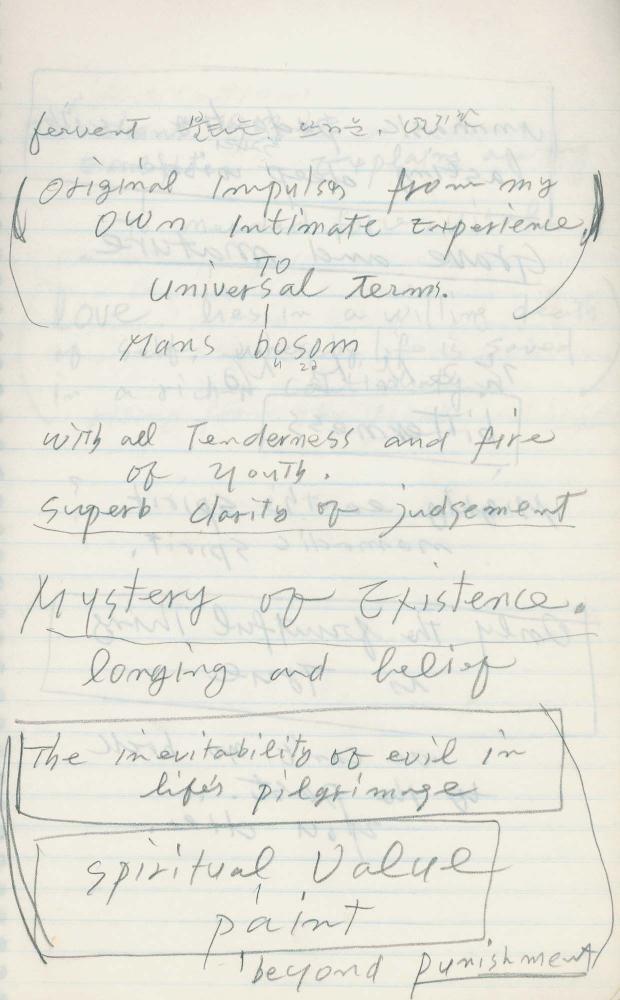 fervent 불타는, 뜨거운,
Original Impulses from my
own Intimate Experience,
TO
Universal Terms.
Mans bosom
with all Tenderness and fire
of youth.
superb clarity of judgement
Mystery of Existence.
longing and belief
The inevitability of evil in
life's pilgrimage
spiritual Value
paint
beyond punishment